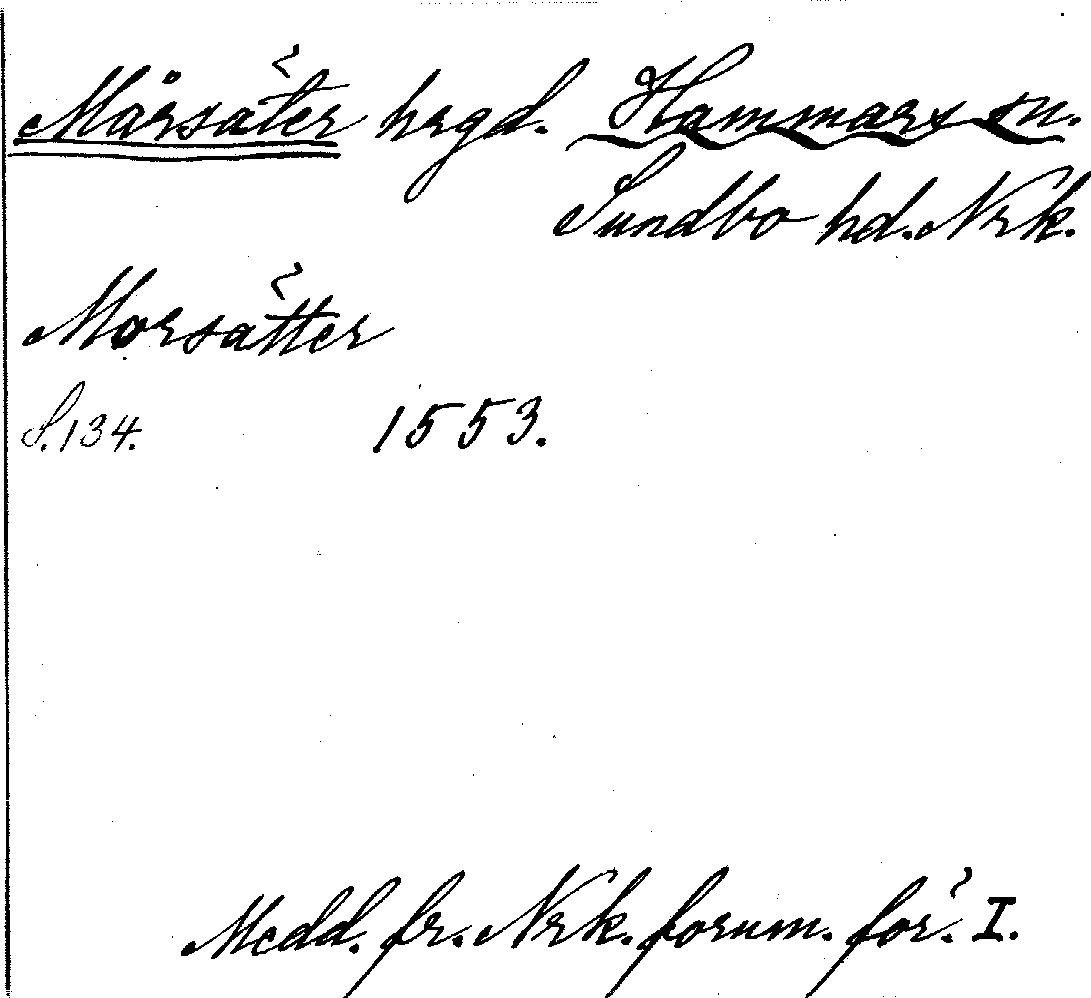 Mårsäter hrgd. Hammars sn.
Sundbo hd. Nrk.
Morsätter
S. 134. 1553.
Medd. fr. Nrk. fornm. för. I.